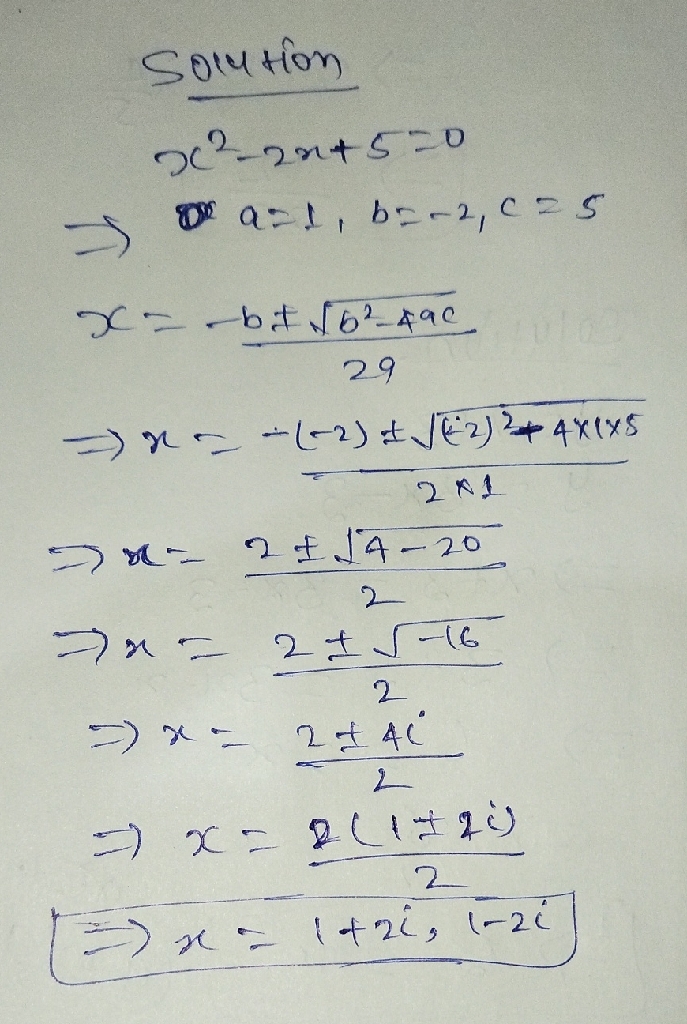 Solution
x²-2x+5=0
⇒ a=1, b=-2, c=5
x = -b±√b²-4ac / 2a
⇒ x = -(-2)±√(-2)²+4×1×5 / 2×1
⇒ x = 2±√4-20 / 2
⇒ x = 2±√-16 / 2
⇒ x = 2±4i / 2
⇒ x = 2(1±2i) / 2
⇒ x = 1+2i, 1-2i